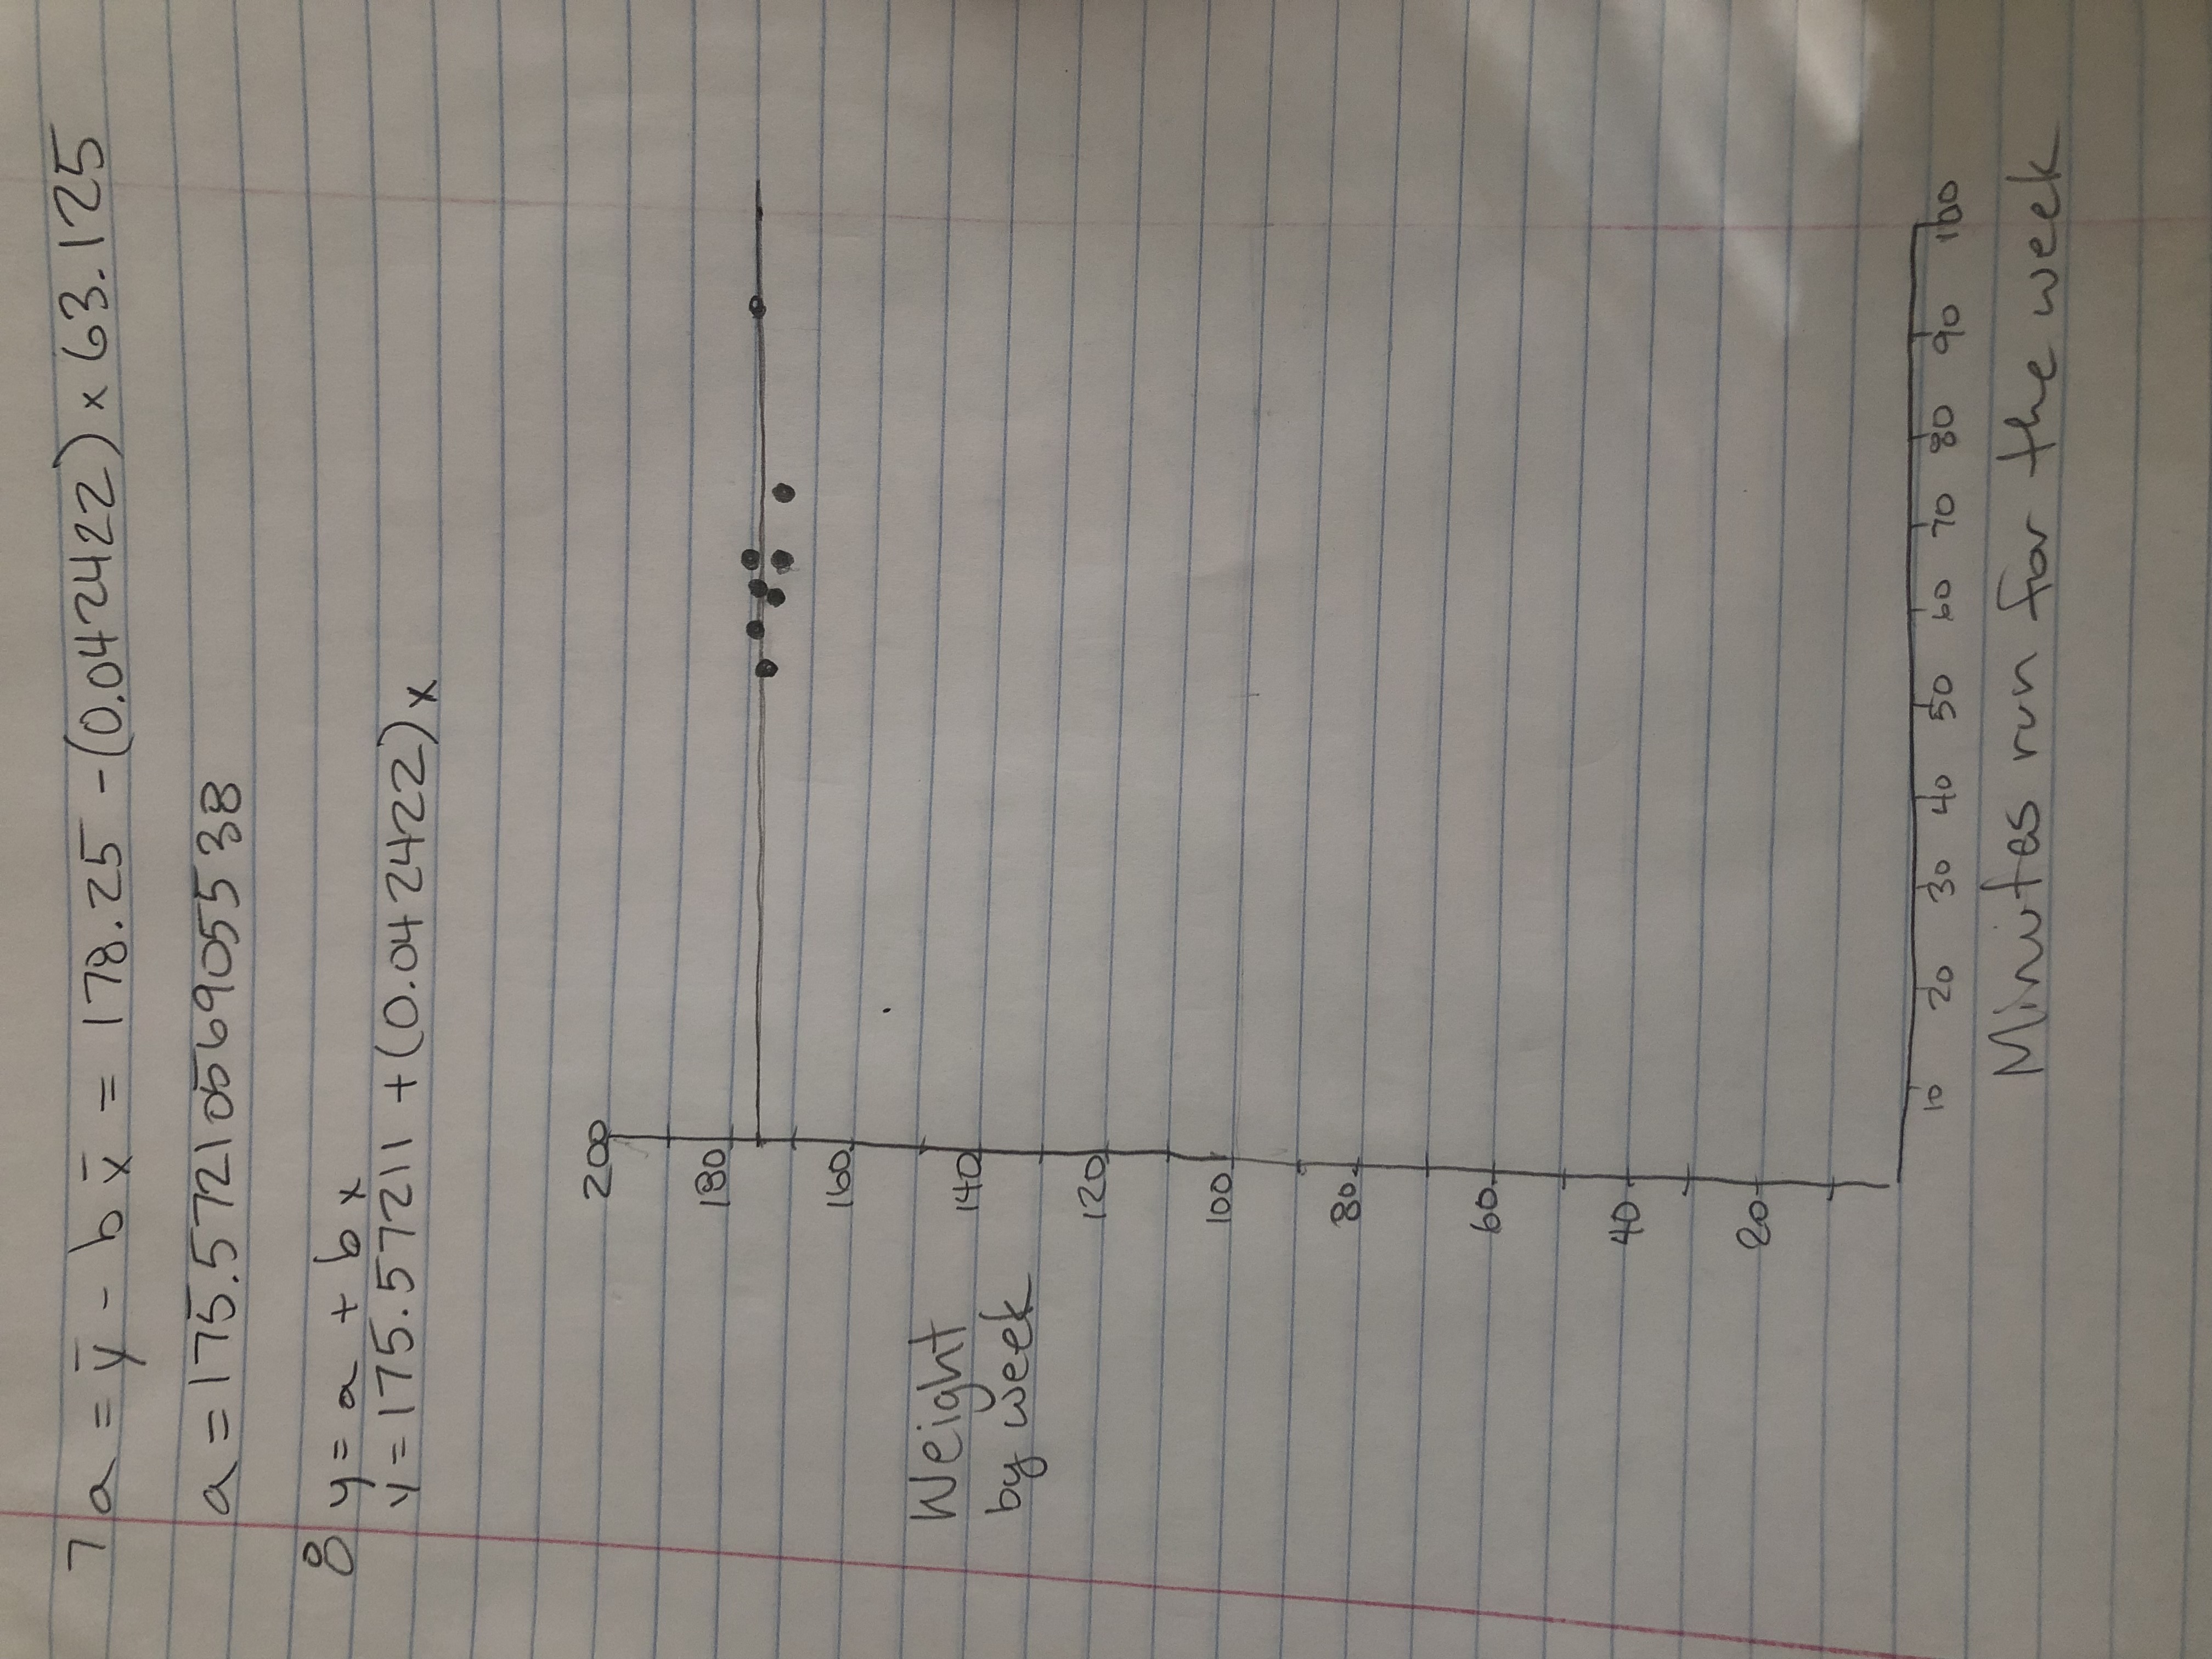 7 a = ȳ - b x̄ = 178.25 - (0.042422) × 63.125
a = 175.5721056905538
8 y = a + b x
y = 175.57211 + (0.042422) x
200
180
160
Weight
140
by week
120
100
80
60
40
20
10 20 30 40 50 60 70 80 90 100
Minutes run for the week